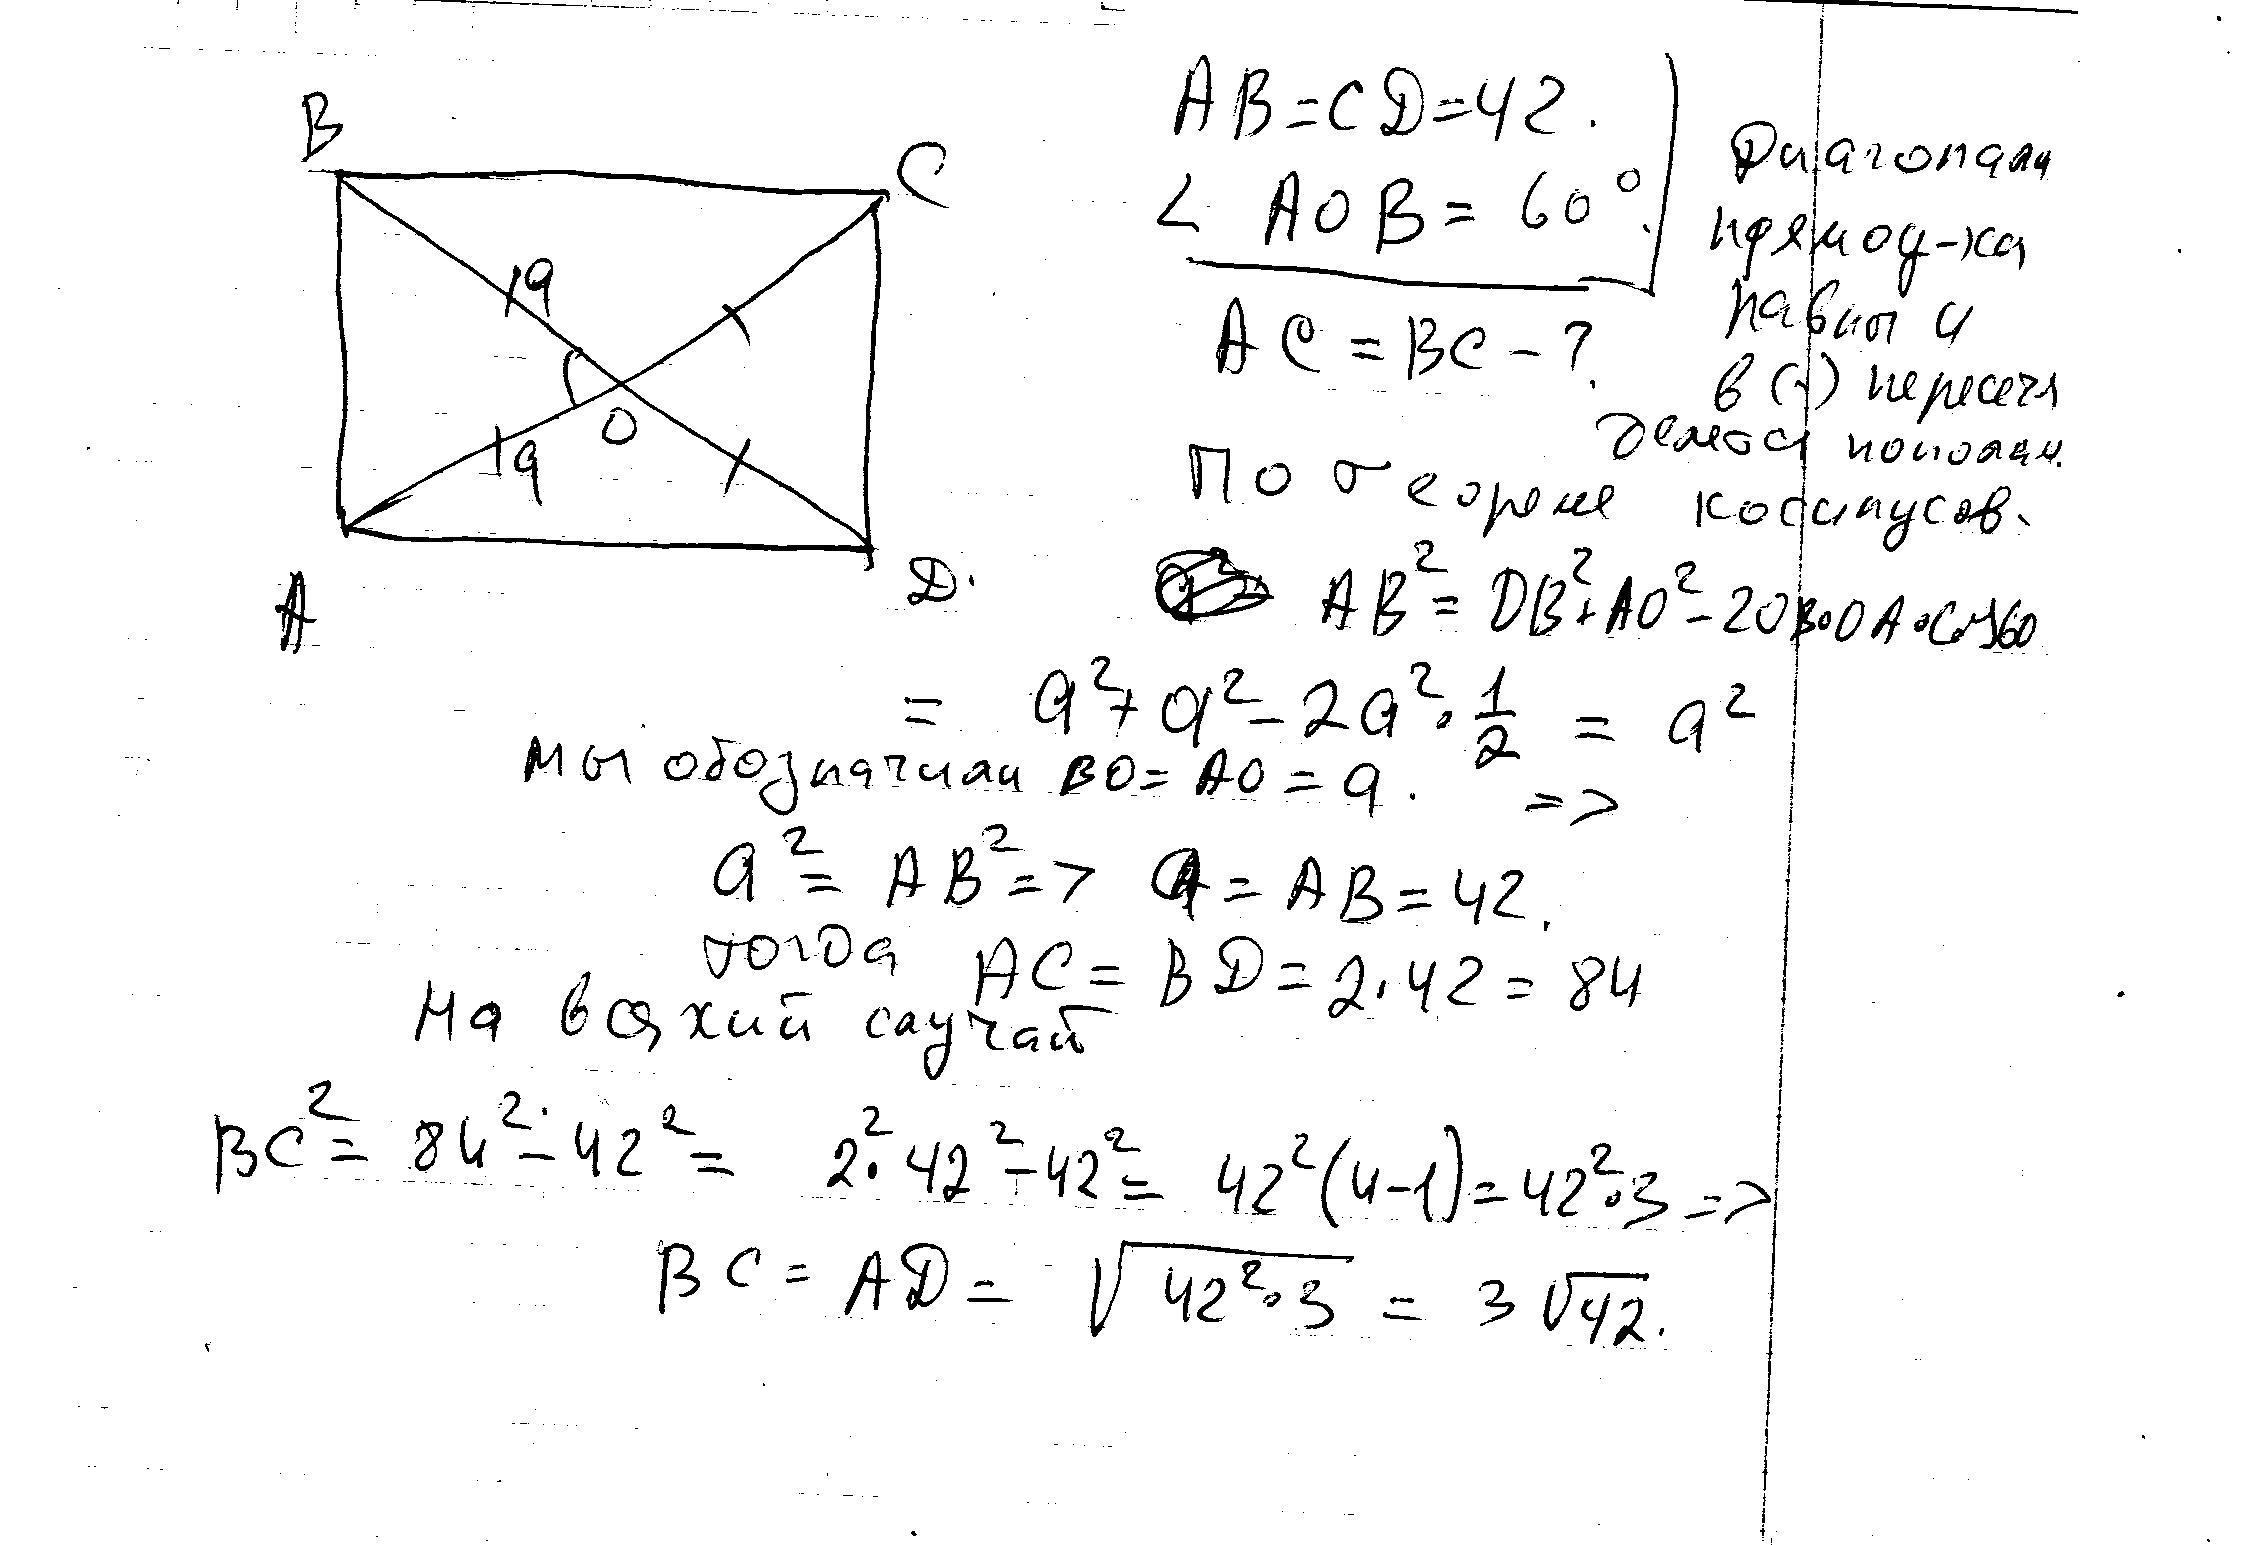 B
C
AB=CD=42.
< AOB = 60°.
Диагонали
прямоу-ка
равны и
в (·) пересеч
делятся пополам.
a
a
O
A
D.
AC = BC - ?
По теореме косинусов.
AB² = OB² + AO² - 2OB·OA·cos60
= a² + a² - 2a²·1/2 = a²
мы обозначили BO = AO = a. =>
a² = AB² => a = AB = 42.
тогда AC = BD = 2·42 = 84
На всякий случай
BC² = 84² - 42² = 2²·42² - 42² = 42²(4-1) = 42²·3 =>
BC = AD = √42²·3 = 3√42.